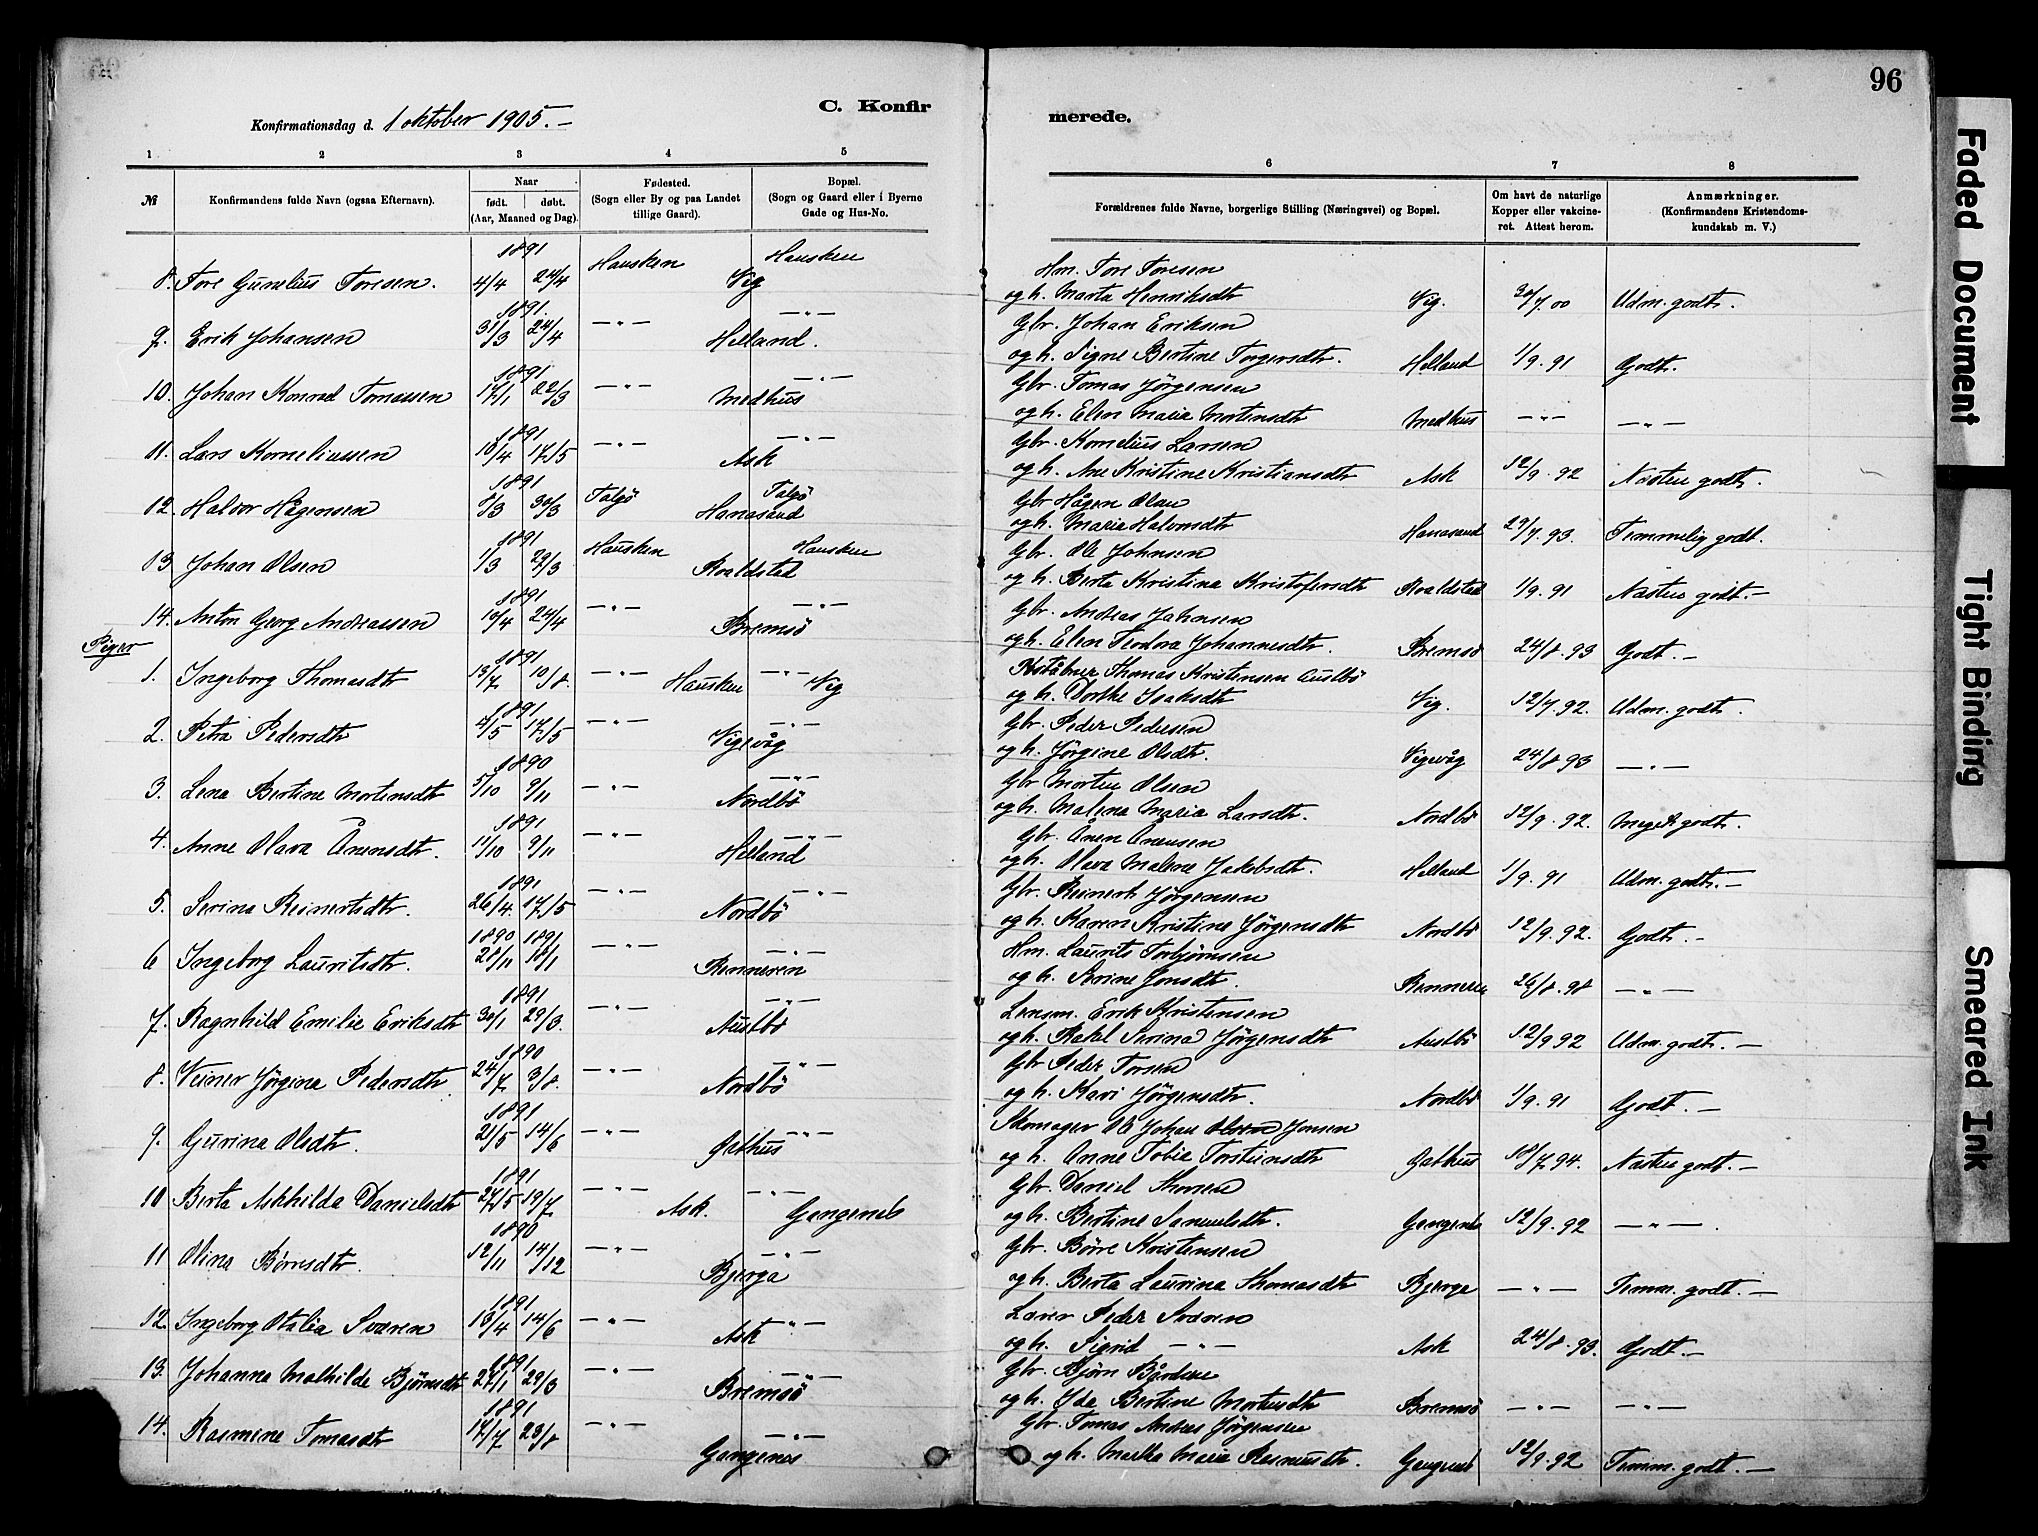 96
C. Konfirmerede.
Konfirmationsdag d. 1 oktober 1905.-
1 2 3 4 5 6 7 8
№ | Konfirmandens fulde Navn (ogsaa Efternavn). | Naar født. døbt. (Aar, Maaned og Dag). | Fødested. (Sogn eller By og paa Landet tillige Gaard). | Bopæl. (Sogn og Gaard eller i Byerne Gade og Hus-No. | Forældrenes fulde Navne, borgerlige Stilling (Næringsvei) og Bopæl. | Om havt de naturlige Kopper eller vakcineret. Attest herom. | Anmærkninger. (Konfirmandens Kristendomskundskab m. V.)
8. Tore Gunelius Toresen. 1891 4/4 24/4 Hausken Hausken Vig Hm. Tore Toresen
og h. Marta Henriksdtr Vig. /7 00 Udm. godt.
9. Erik Johansen 1891. 31/3 24/4 —"— —"— Helland. Gbr. Johan Eriksen
og h. Signe Bertine Torgersdtr. Helland 1/9. 91 Godt.
10. Johan Konrad Tomassen 1891 17/1 22/3 —"— —"— Medhus Gbr. Tomas Jørgensen
og h. Elen Marie Mortensdtr Medhus —"— —"—
11. Lars Korneliussen 1891 10/4 17/5 —"— —"— Ask Gbr. Kornelius Larsen
og h. Ane Kristine Kristiansdtr Ask 12/9. 92 Næsten godt.
12. Halvor Hågensen 1891 8/3 30/3 Talgö Talgö Hanasand Gbr Hågen Olau
og h. Maria Halvorsdtr Hanasand 29/7. 93. Temmelig godt.
13 Johan Olsen 1891 1/3 29/3 Hausken Hausken Roaldstad Gbr. Ole Johnsen
og h. Berta Kristina Kristofersdtr Roaldstad 1/9. 91 Næsten godt.—
14. Anton Georg Andreassen 1891 10/4 24/4 —"— —"— Bremsö Gbr. Andreas Johnsen
og h. Elen Teodora Johannesdtr. Bremsö 24/8. 93 Godt.—
Piger
1. Ingeborg Thomasdtr 1891 13/7 10/8. —"— Hausken —"— Vig Thomas Kristensen Austbö
og h. Dorthe Isaksdtr Vig. 12/7. 92. Udm. godt.
2. Petra Pedersdtr 1891 4/5 17/5 —"— —"— Vigevåg Gbr. Peder Pedersen
og h. Jörgine Olsdtr. Vigevåg 24/8 93 —"—
3. Lena Bertine Mortensdtr 1890 5/10 9/11 —"— —"— Nordbö Gbr Morten Olsen
og h. Malena Maria Larsdtr. Nordbö 12/9. 92. Meget godt.
4. Anne Olava Ånensdtr. 1891 11/10 9/11 —"— —"— Helland Gbr. Ånen Ånensen
og h. Olava Malene Jakobsdtr. Helland 1/9. 91 Udm. godt.—
5. Serina Reinertsdtr. 1891 26/4. 17/5 —"— —"— Nordbö Gbr. Reinert Jörgensen
og h. Karen Kristine Jörgensdtr Nordbö 12/9. 92. Godt.—
6 Ingeborg Lauritsdtr. 1890 1891 28/11 18/1 —"— —"— Renneren Hm. Laurits Torbjörnsen
og h. Serine Jonsdtr. 26/8. 98 —"—
7. Ragnhild Emilie Eriksdtr 1891 30/1 29/3. —"— —"— Austbö Lensm. Erik Kristensen
og h. Rakel Serina Jörgensdtr Austbö 12/9 92 Udm. godt.—
8. Veiner Jörgina Pedersdtr 1890 24/7 3/8. —"— —"— Nordbö Gbr Peder Torsen
og h. Kari Jörgensdtr. Nordbö 1/9. 91 Godt.—
9. Gurina Olsdtr. 1891 21/5 14/6 —"— —"— Gathus Skomager Ole Johan Olsen Jonsen
og h. Anne Tobia Torsteinsdtr Gathus 18/7. 94. Næsten godt.—
10 Berta Askhilda Danielsdtr 1891 27/5 19/7 —"— Ask. —"— Gangenes Gbr. Daniel Thorsen
og h. Bertine Samuelsdtr. 12/9. 92 —"—.
11 Olina Børresdtr. 1890 12/11 14/12 —"— —"— Bjerga Gbr. Börre Kristensen
og h. Berta Laurina Thomasdtr Bjerga —"— Temm. godt.—
12. Ingeborg Otalia Sværen 1891 13/4 14/6 —"— —"— Ask Lærer Peder Sværen
og h. Sigrid —"— Ask 24/8. 93. Godt.—
13. Johanna Mathilde Bjørnsdtr 1891 27/1 29/3 —"— —"— Bremsö Gbr. Bjørn Bårdsen
og h. Ida Bertine Mortensdtr Bremsö —"— —"—
14. Rasmine Tomasdtr 1891 17/7 23/8 —"— —"— Gangenes Gbr. Tomas Andreas Jörgensen
og h. Martha Maria Rasmusdtr. 12/9. 92 Temm. godt.—
Faded Document
Tight Binding
Smeared Ink